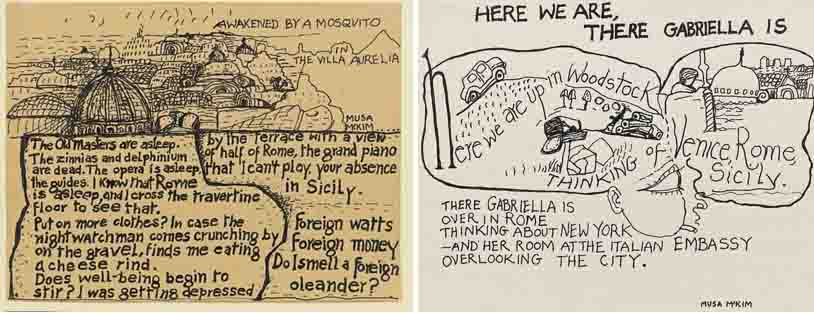 AWAKENED BY A MOSQUITO
IN
THE VILLA AURELIA
MUSA
McKIM
The Old Masters are asleep.
The zinnias and delphinium
are dead. The opera is asleep,
the guides. I know that Rome
is asleep, and I cross the travertine
floor to see that.
Put on more clothes? In case the
nightwatchman comes crunching by
on the gravel, finds me eating
a cheese rind.
Does well-being begin to
stir? I was getting depressed
by the terrace with a view
of half of Rome, the grand piano
that I can't play, your absence
in Sicily.
Foreign watts
Foreign money
Do I smell a foreign
oleander?
HERE WE ARE,
THERE GABRIELLA IS
Here we are up in Woodstock
THINKING
of Venice, Rome,
Sicily.
THERE GABRIELLA IS
OVER IN ROME
THINKING ABOUT NEW YORK
—AND HER ROOM AT THE ITALIAN EMBASSY
OVERLOOKING THE CITY.
MUSA McKIM